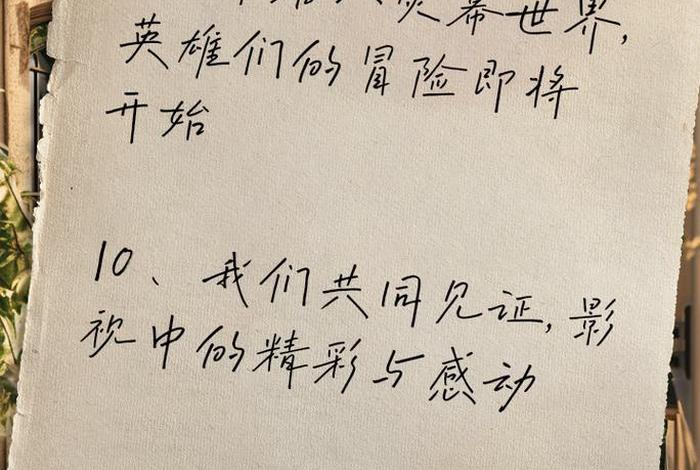 荧幕世界,
英雄们的冒险即将
开始
10、我们共同见证,影
视中的精彩与感动